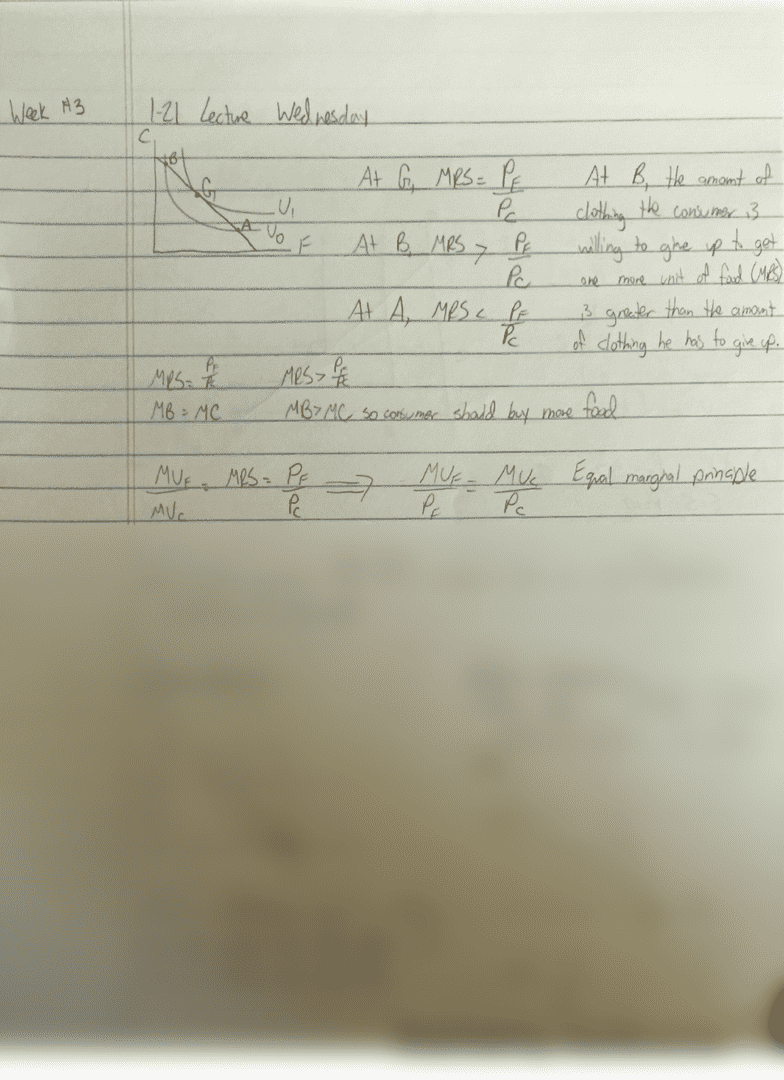 Week #3
1-21 Lecture Wednesday
C
B
G
U₁
A
U₀
F
At G, MRS = P_F/P_C
At B, MRS > P_F/P_C
At A, MRS < P_F/P_C
At B, the amount of
clothing the consumer is
willing to give up to get
one more unit of food (MRS)
is greater than the amount
of clothing he has to give up.
MRS = P_F/P_C MRS > P_F/P_C
MB = MC MB > MC so consumer should buy more food
MU_F/MU_C = MRS = P_F/P_C ⟹ MU_F/P_F = MU_C/P_C Equal marginal principle